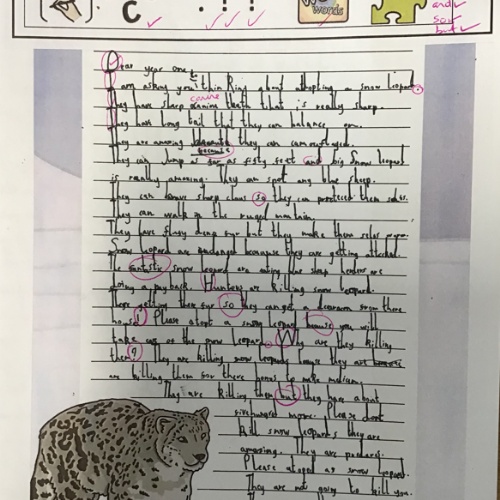 C . ! !
wow words
and
so
but
Dear year one,
I am asking you thinking about adopting a snow leopard.
canine
They have sharp canine teath that is really sharp.
They have long tail that they can balance on.
They are amazing because they can camouflage.
because
They can Jump as far as fifty feet and big Snow leopard
is really amazing. They am spot and the sheep.
They can have sharp claws so they can protected them selfs.
They can walk in the rugged mountain.
They have flufy deep fur but they make them relax
Snow leopard are endanget because they are getting attacked.
The fantastic snow leopard are eating the sheep
doing a payback. Hunters are killing snow leopard.
There getting there fur so they can get a from there
Please adopt a snow leopard because you will
take care of the snow leopard. Why are they killing
them? They are killing snow leopards because they are
are killing them for there bones to make medicen.
They are killing them but they have about
five hundred more. Please dont
kill snow leopards they are
amazing. They are
Please adopted as snow leopard.
They are not going to kill you.